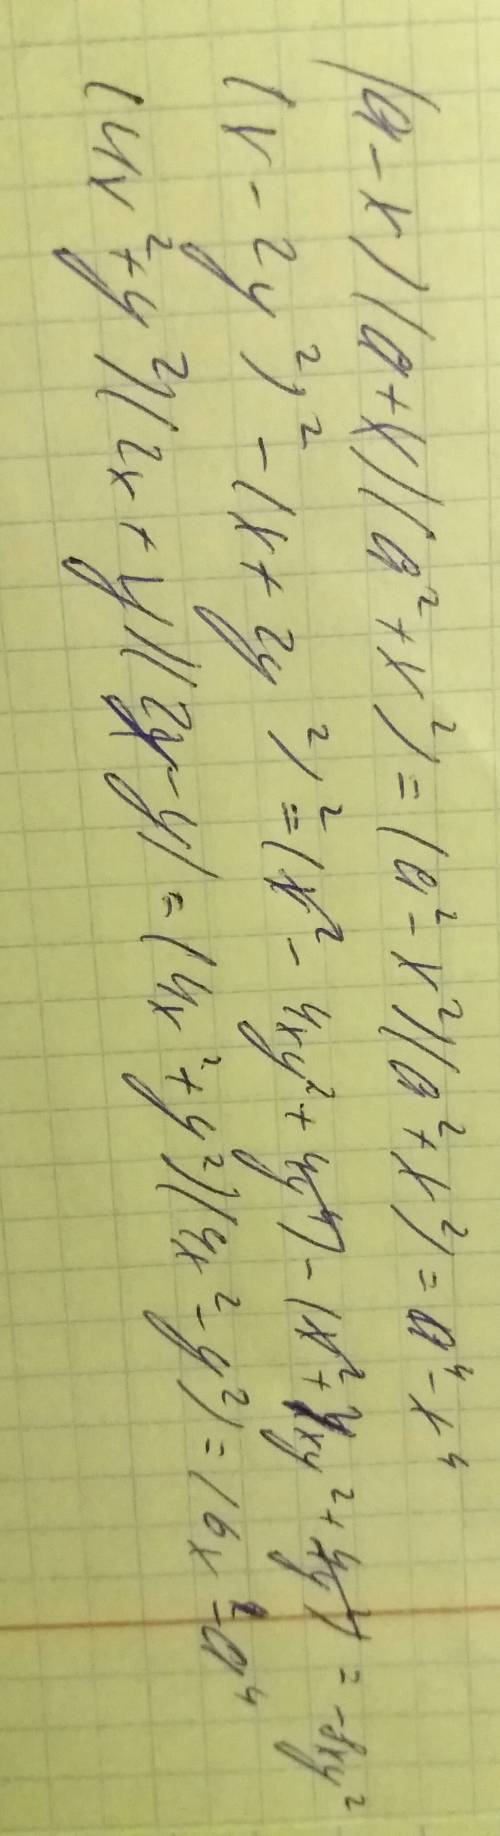 (a-x)(a+x)(a²+x²)=(a²-x²)(a²+x²)=a⁴-x⁴
(x-2y²)²-(x+2y²)²=(x²-4xy²+4y⁴)-(x²+4xy²+4y⁴)=-8xy²
(4x²+y²)(2x+y)(2x-y)=(4x²+y²)(4x²-y²)=16x⁴-a⁴